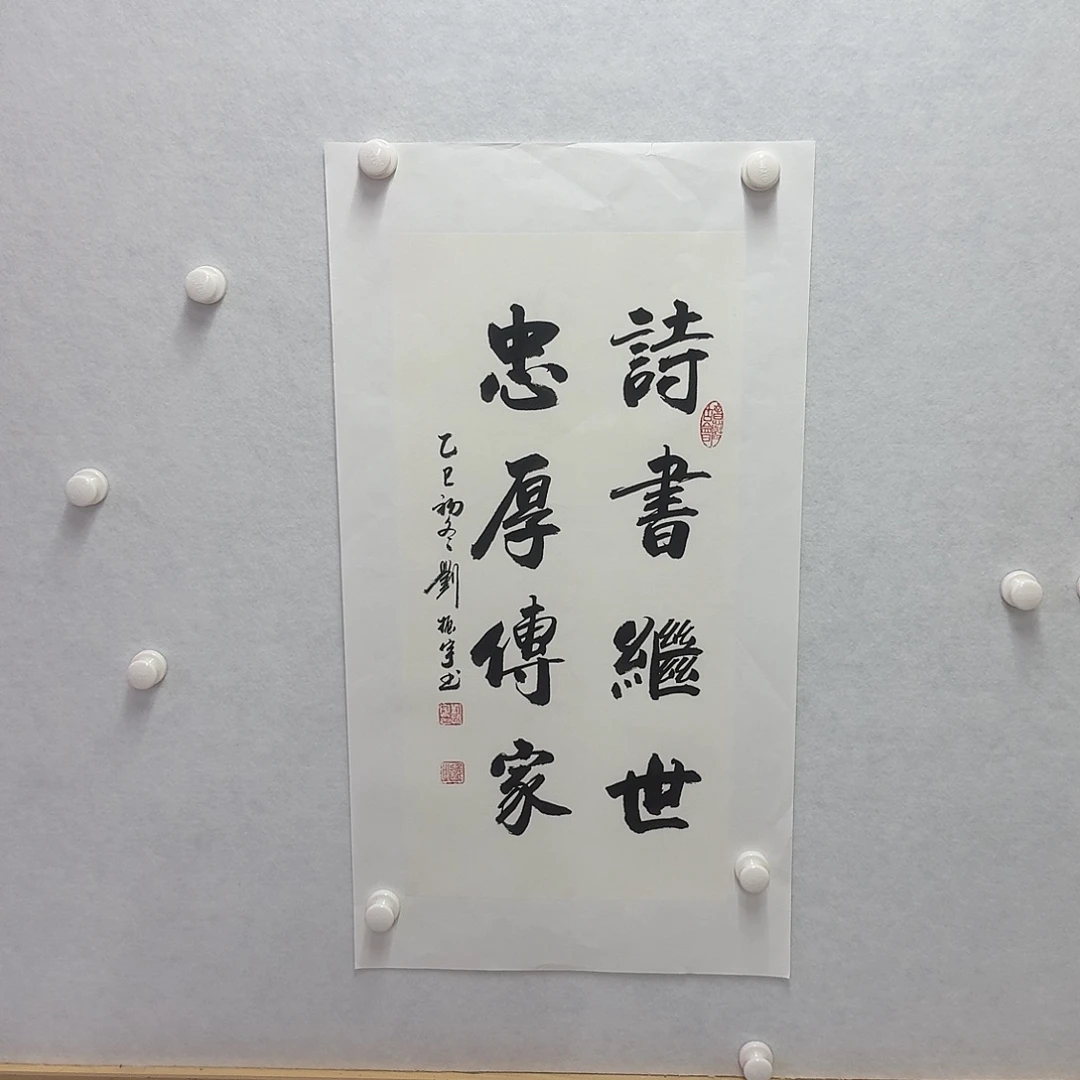 詩書繼世
忠厚傳家
乙巳初冬劉振宇书